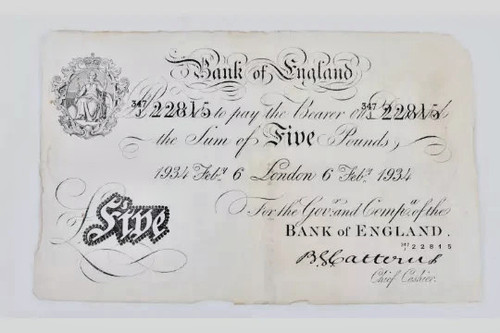 Bank of England
347/J 22815 to pay the Bearer on Demand 347/J 22815
the Sum of Five Pounds
1934 Feb.y 6 London 6 Feb.y 1934
For the Gov.r and Comp.a of the
BANK OF ENGLAND.
347/J 22815
£Five
B.G.Catterns
Chief Cashier.